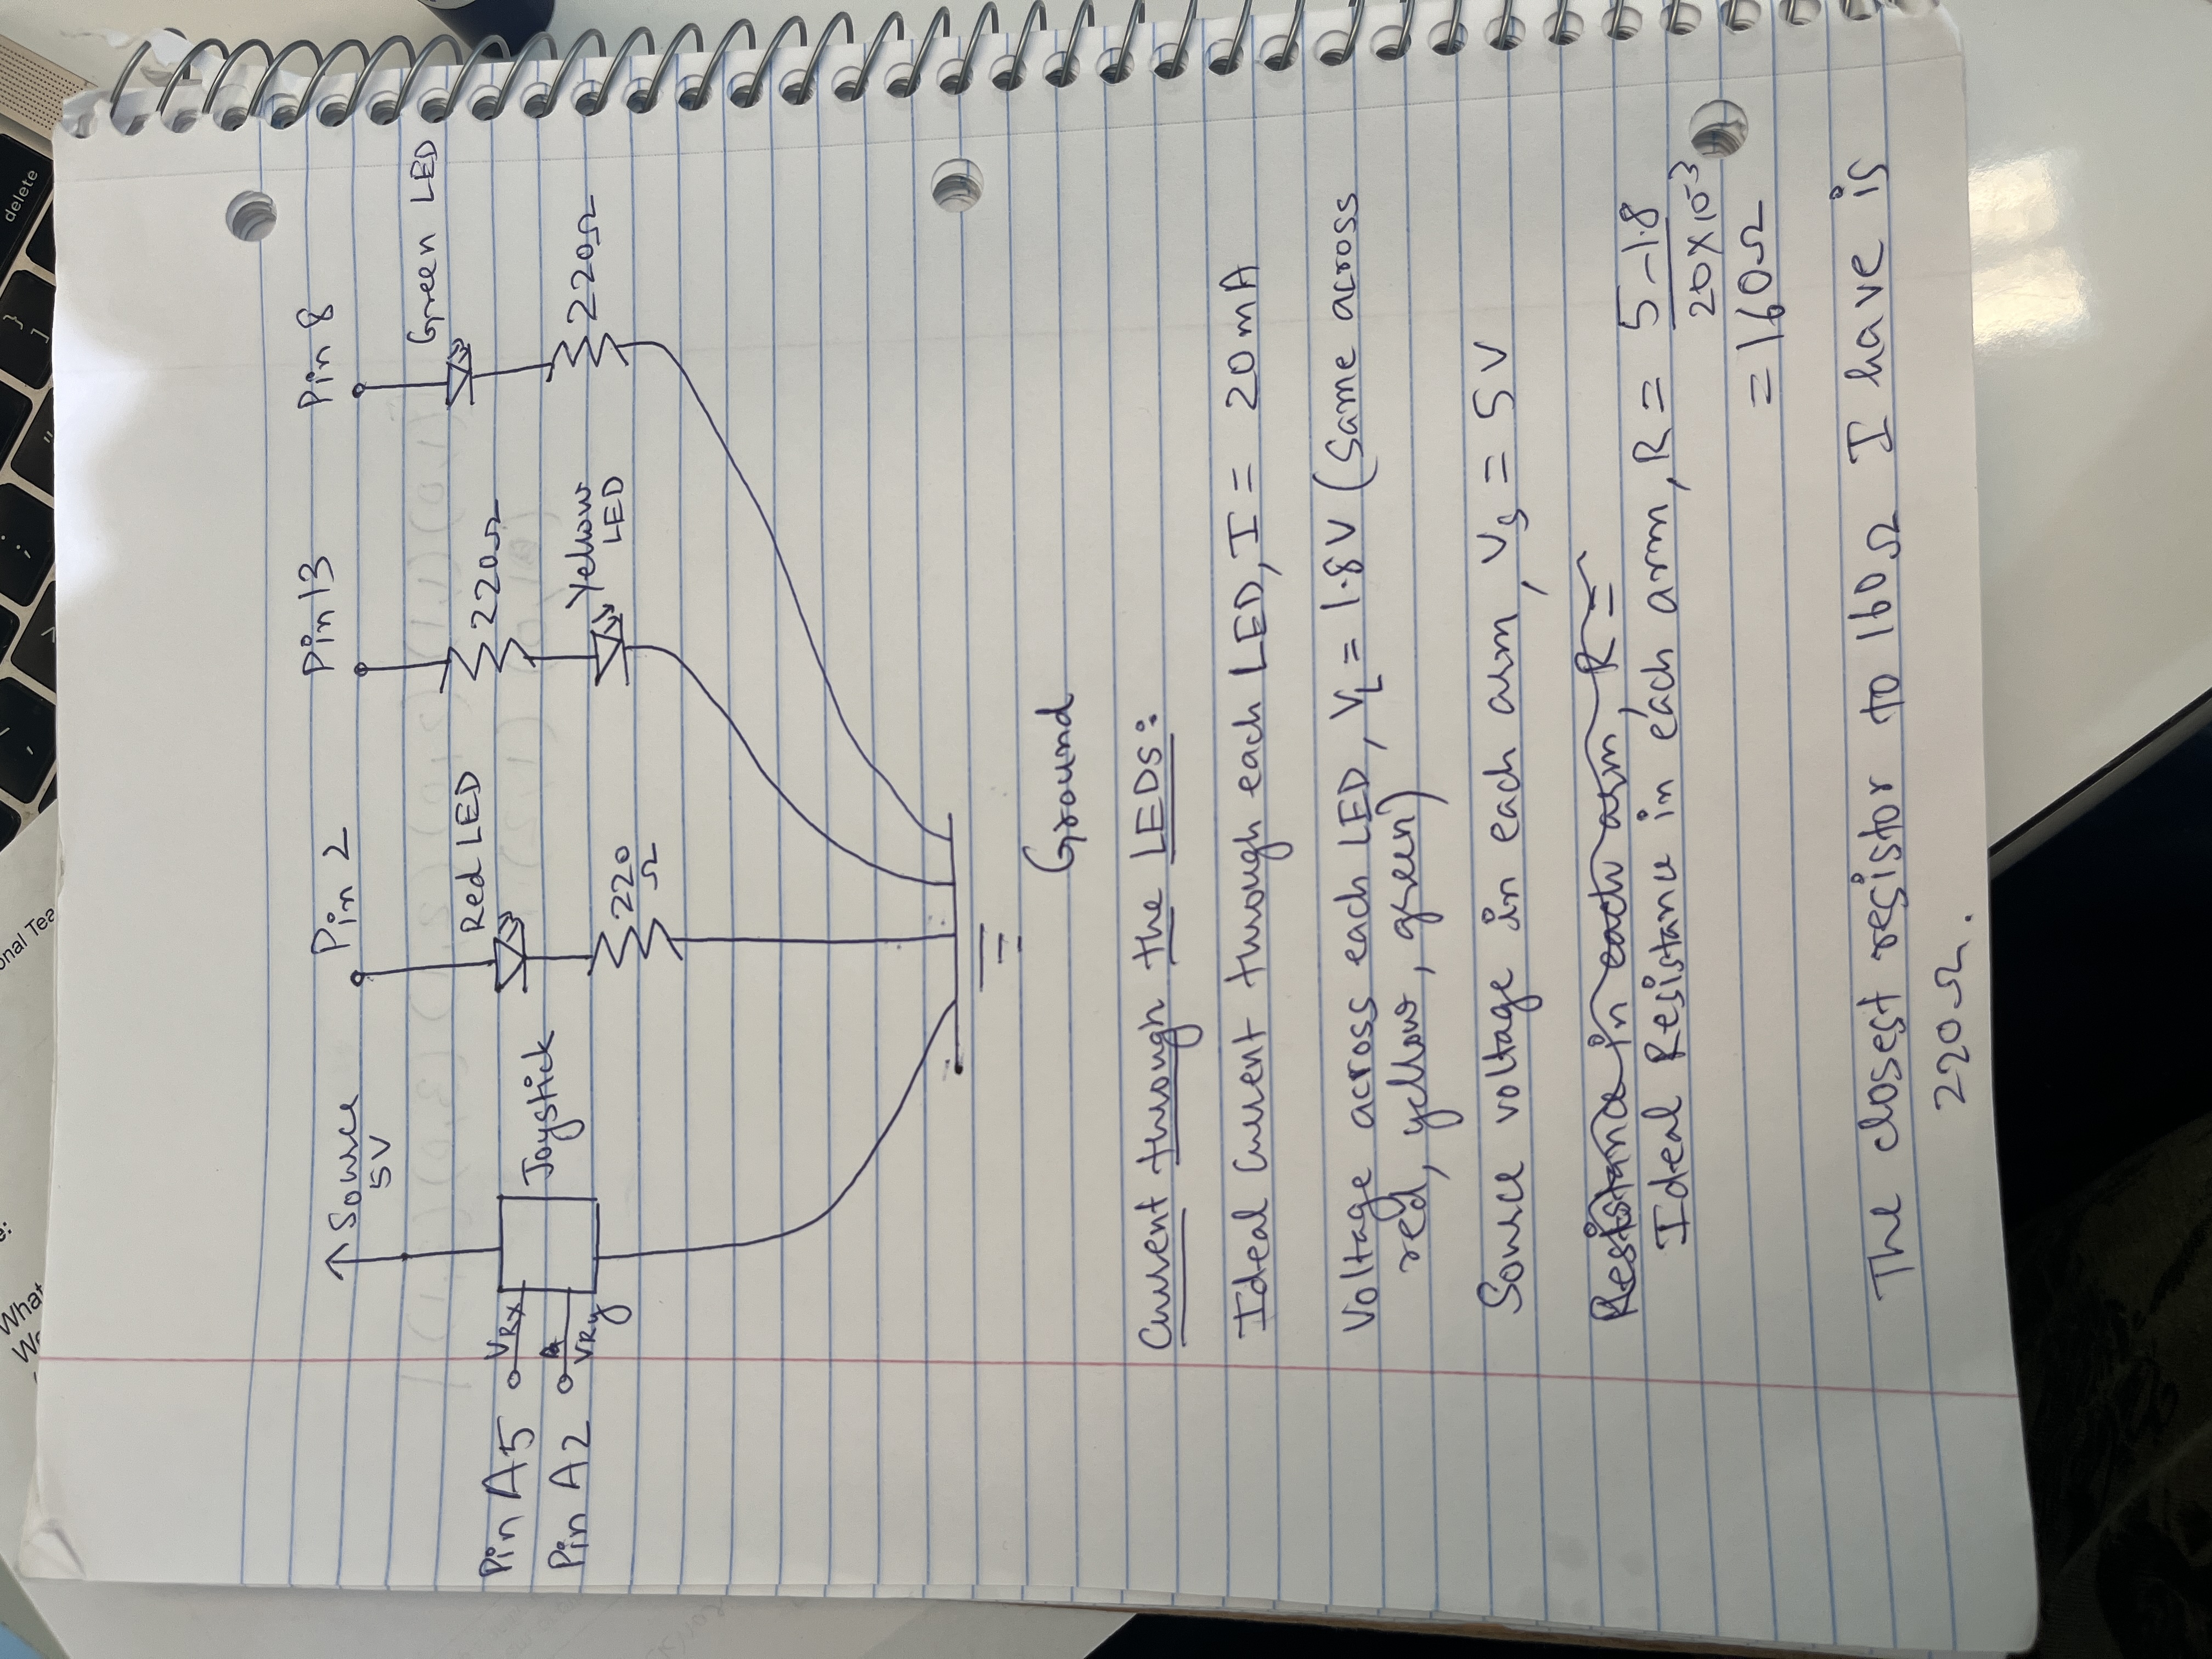 What
e:
We
onal Tea
delete
Source
5V
Pin 2
Pin 13
Pin 8
Pin A5
VRx
Pin A2
VRy
Joystick
Red LED
220
Ω
220Ω
Yellow
LED
Green LED
220Ω
Ground
Current through the LEDs:
Ideal Current through each LED, I = 20mA
Voltage across each LED, VL = 1.8V (Same across
red, yellow, green)
Source voltage in each arm, Vs = 5V
Resistance in each arm, R =
Ideal Resistance in each arm, R = 5-1.8
20×10-3
= 160Ω
The closest resistor to 160Ω I have is
220Ω.